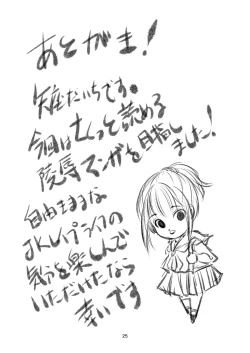 あとがき！
だいちです。
今回はさくっと読める
陵辱マンガを目指しました！
自由きままな
JKレイプライフの
気分を楽しんで
いただけたなら
幸いです
25